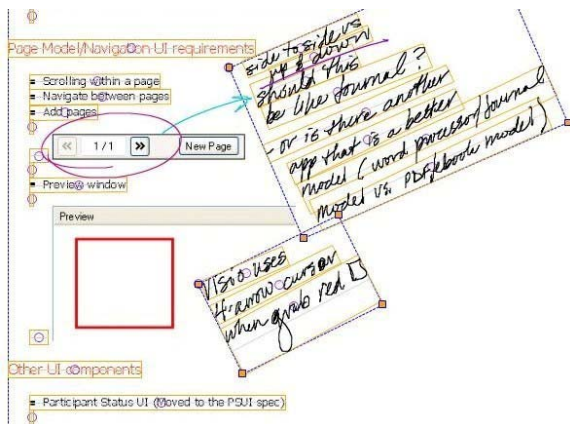 Page Model/Navigation UI requirements
Scrolling within a page
Navigate between pages
Add pages
<< 1/1 >> New Page
Preview window
Preview
Other UI components
Participant Status UI (Moved to the PSUI spec)
side to side vs
up & down
should this
be like Journal?
- or is there another
app that is a better
model (word processor/Journal
model vs. PDF/ebook model)
Visio uses
4-arrow cursor
when grab red